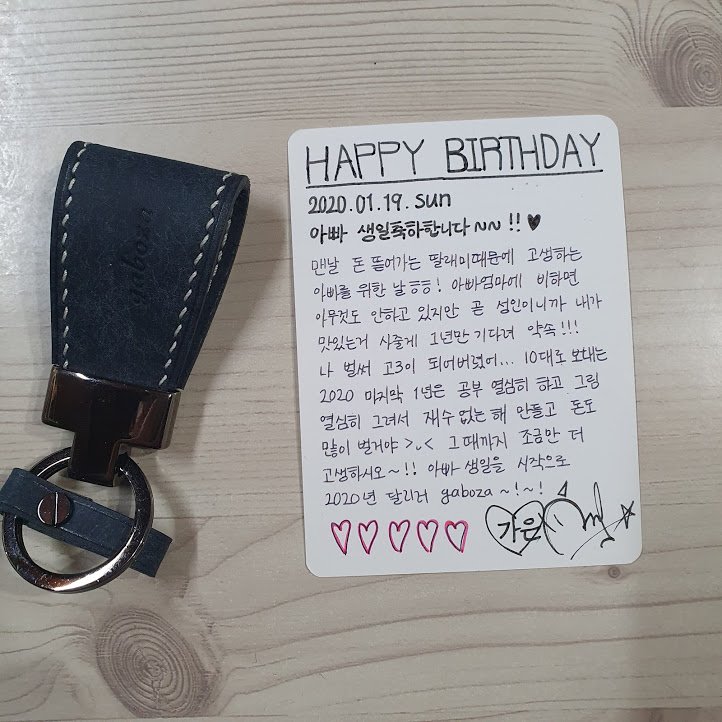 gaboza
HAPPY BIRTHDAY
2020.01.19. sun
아빠 생일축하합니다~~ !! ♥
맨날 돈 뜯어가는 딸래미때문에 고생하는
아빠를 위한 날ㅎㅎ! 아빠엄마에 비하면
아무것도 안하고 있지만 곧 성인이니까 내가
맛있는거 사줄게 1년만 기다려 약속!!!
나 벌써 고3이 되어버렸어... 10대로 보내는
2020 마지막 1년은 공부 열심히 하고 그림
열심히 그려서 재수 없는 해 만들고 돈도
많이 벌거야 >.< 그때까지 조금만 더
고생하시오~!! 아빠 생일을 시작으로
2020년 달리러 gaboza ~!~!
♡♡♡♡♡ 가은